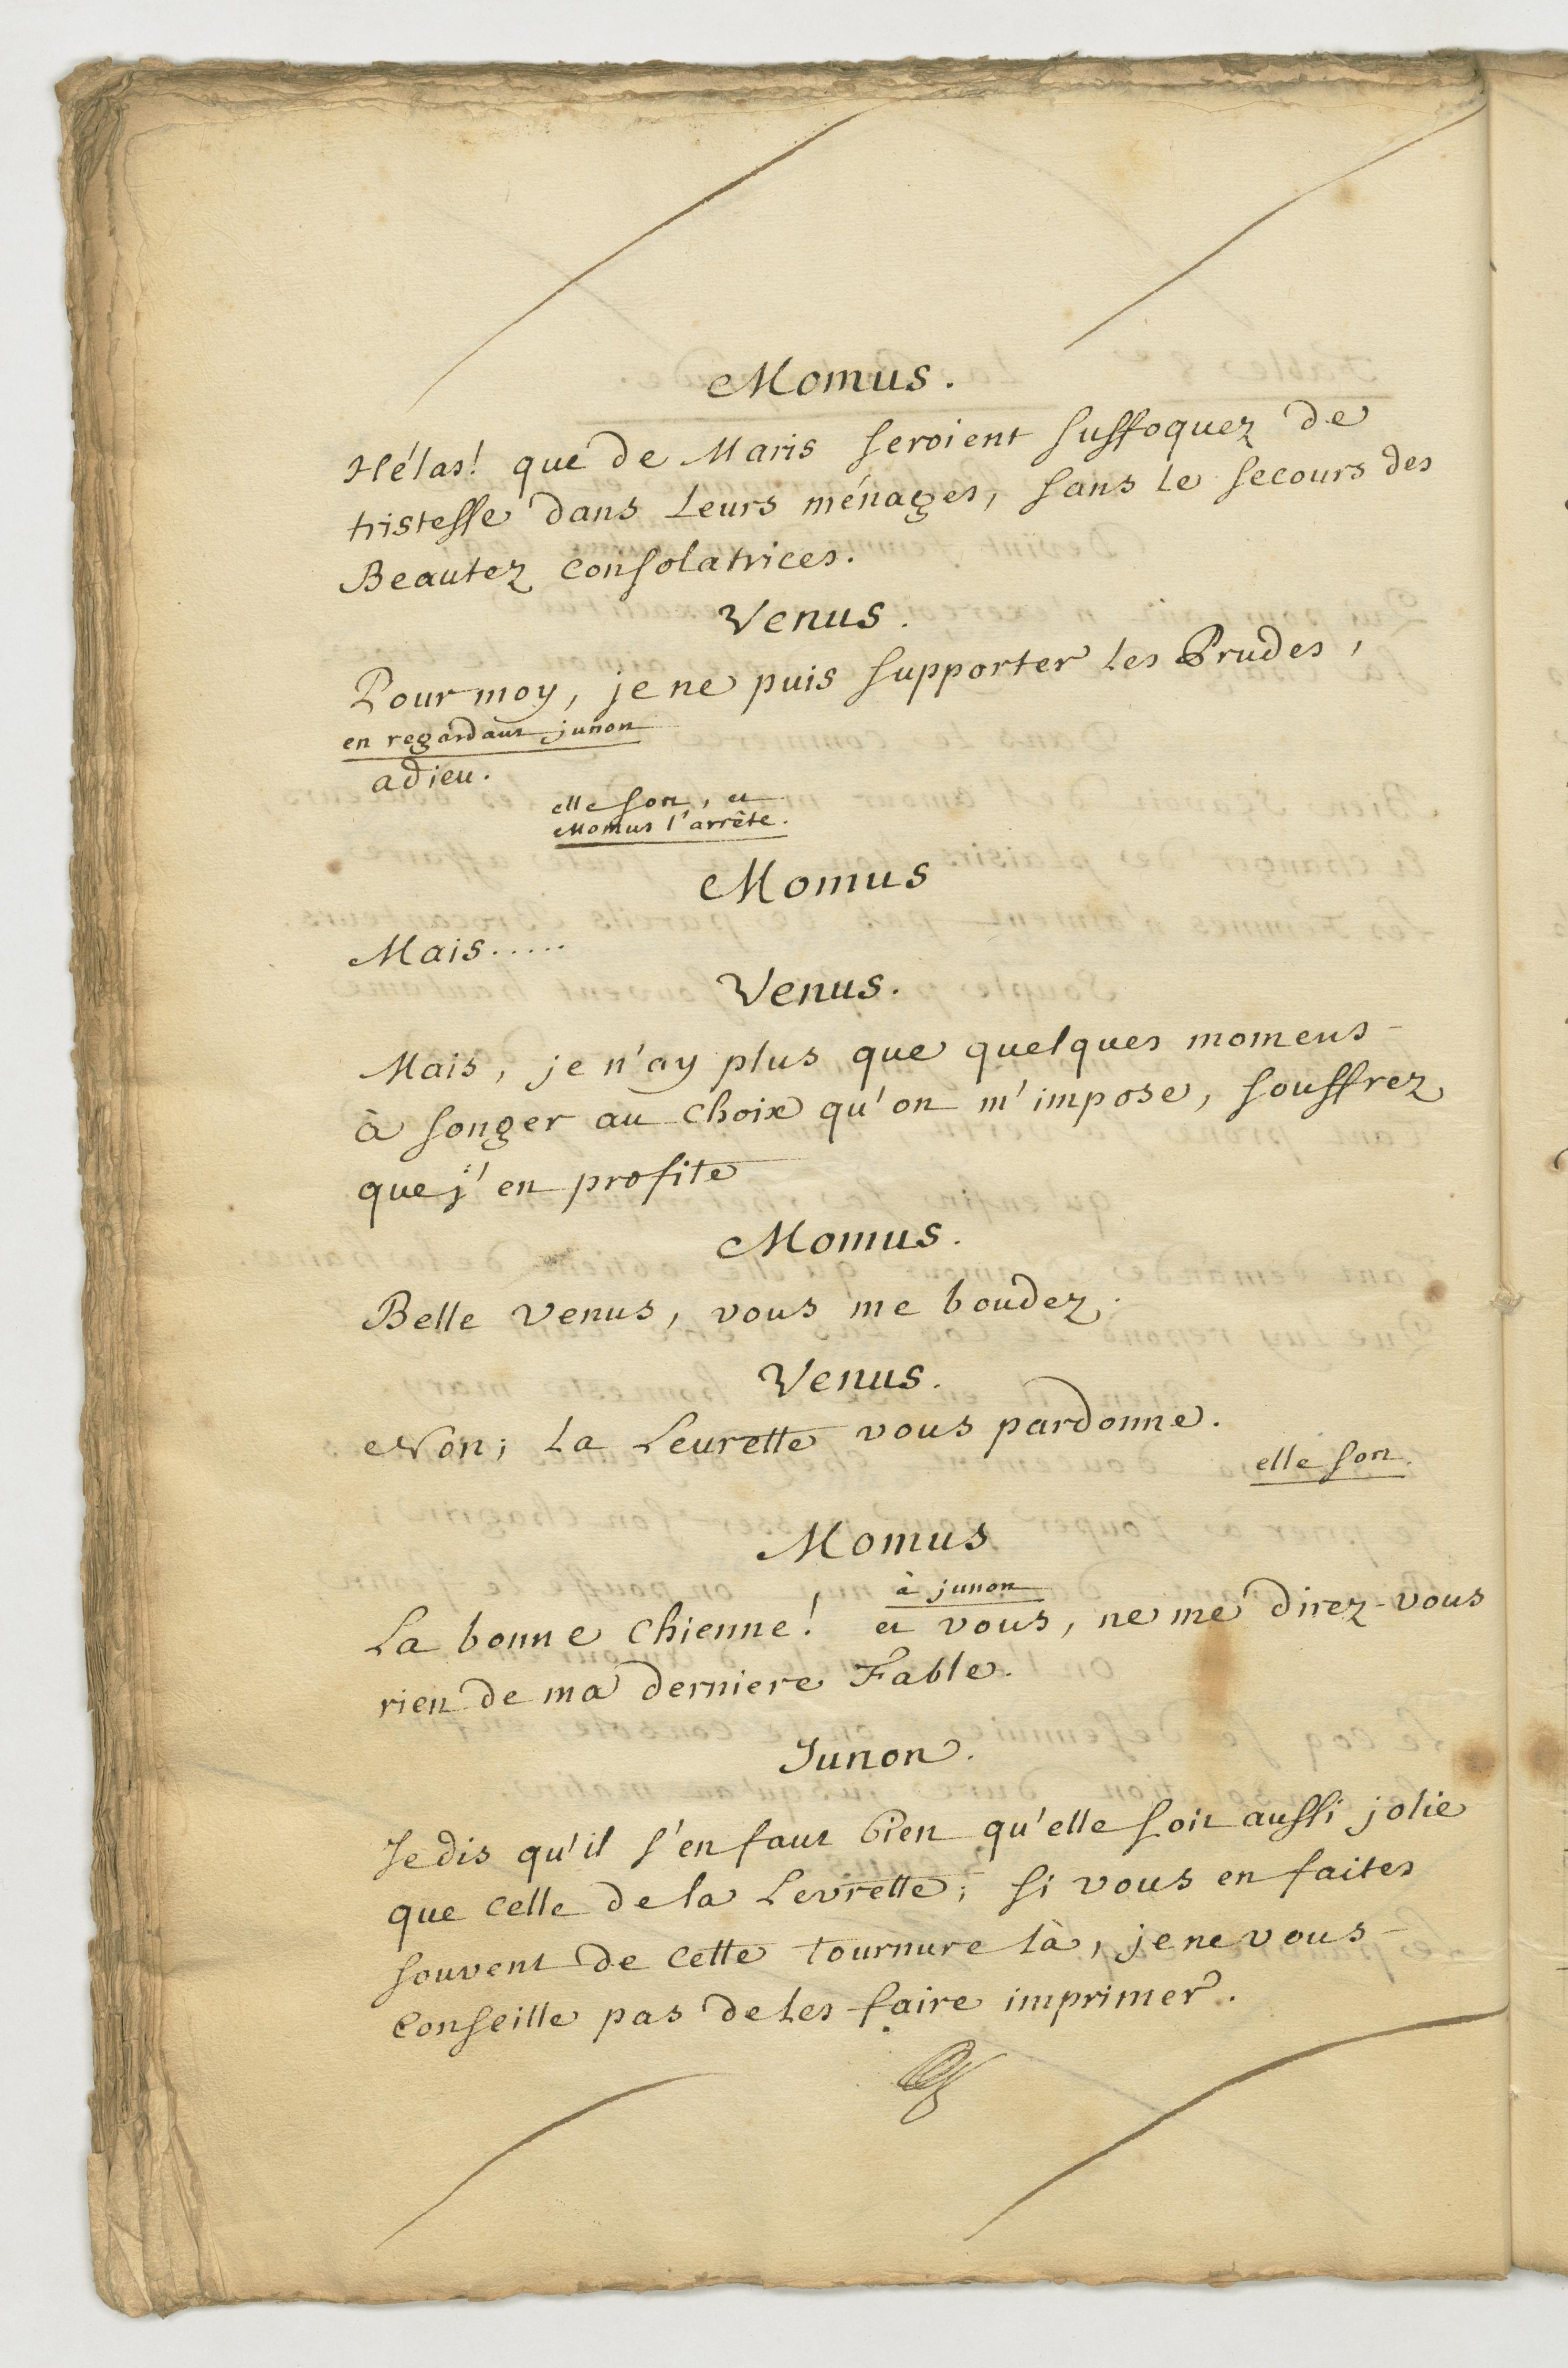 Momus.
Hélas! que de Maris seroient suffoquez de
tristesse dans leurs ménages, sans le secours des
Beautez consolatrices.
Venus.
Pour moy, je ne puis supporter les Prudes,
en regardant junon
adieu.
elle sort, et
Momus l'arrête.
Momus
Mais.....
Venus.
Mais, je n'ay plus que quelques momens
à songer au choix qu'on m'impose, souffrez
que j'en profite
Momus.
Belle Venus, vous me boudez.
Venus.
Non; la Levrette vous pardonne.
elle sort.
Momus
à junon
La bonne Chienne! et vous, ne me direz-vous
rien de ma derniere Fable.
Junon.
Je dis qu'il s'en faut bien qu'elle soit aussi jolie
que celle de la Levrette; si vous en faites
souvent de cette tournure là, je ne vous
conseille pas de les faire imprimer.